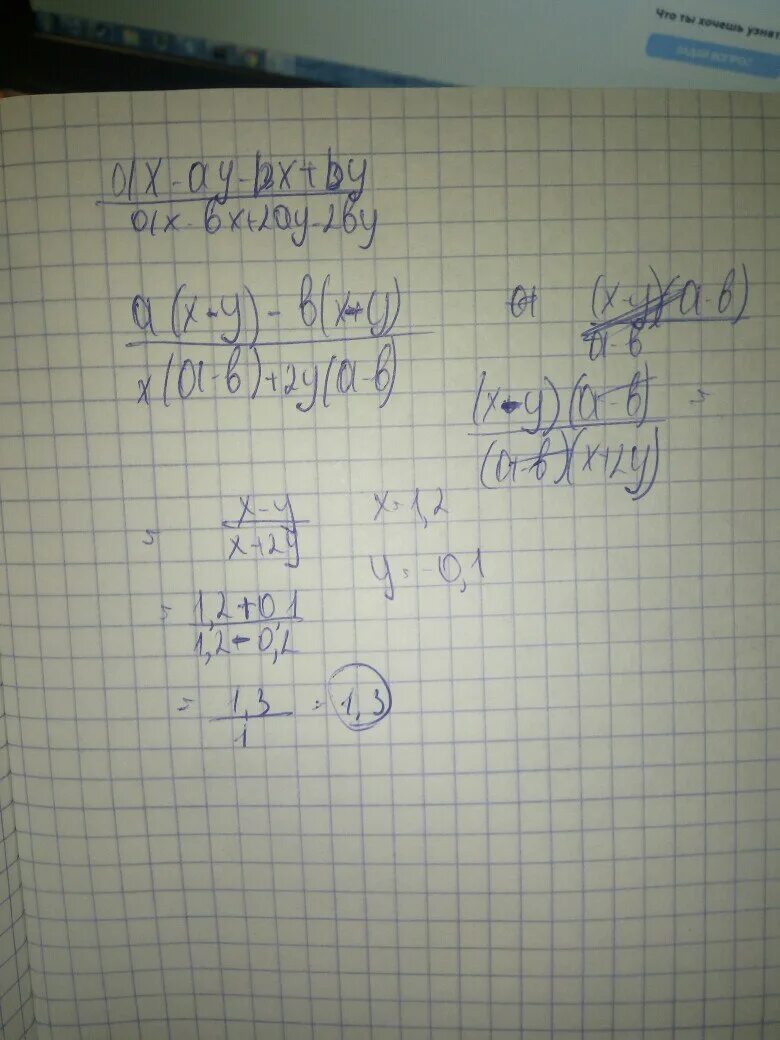 Что ты хочешь узнат
ЗАДАЙ ВОПРОС
ax-ay-bx+by
ax-вx+2ay-2вy
a(x-y)-в(x-y)
x(a-в)+2y(a-в)
(x-y)(a-в)
a-в
(x-y)(a-в) =
(a-в)(x+2y)
= x-y
x+2y
x=1,2
y=-0,1
= 1,2+0,1
1,2-0,2
= 1,3 = 1,3
1